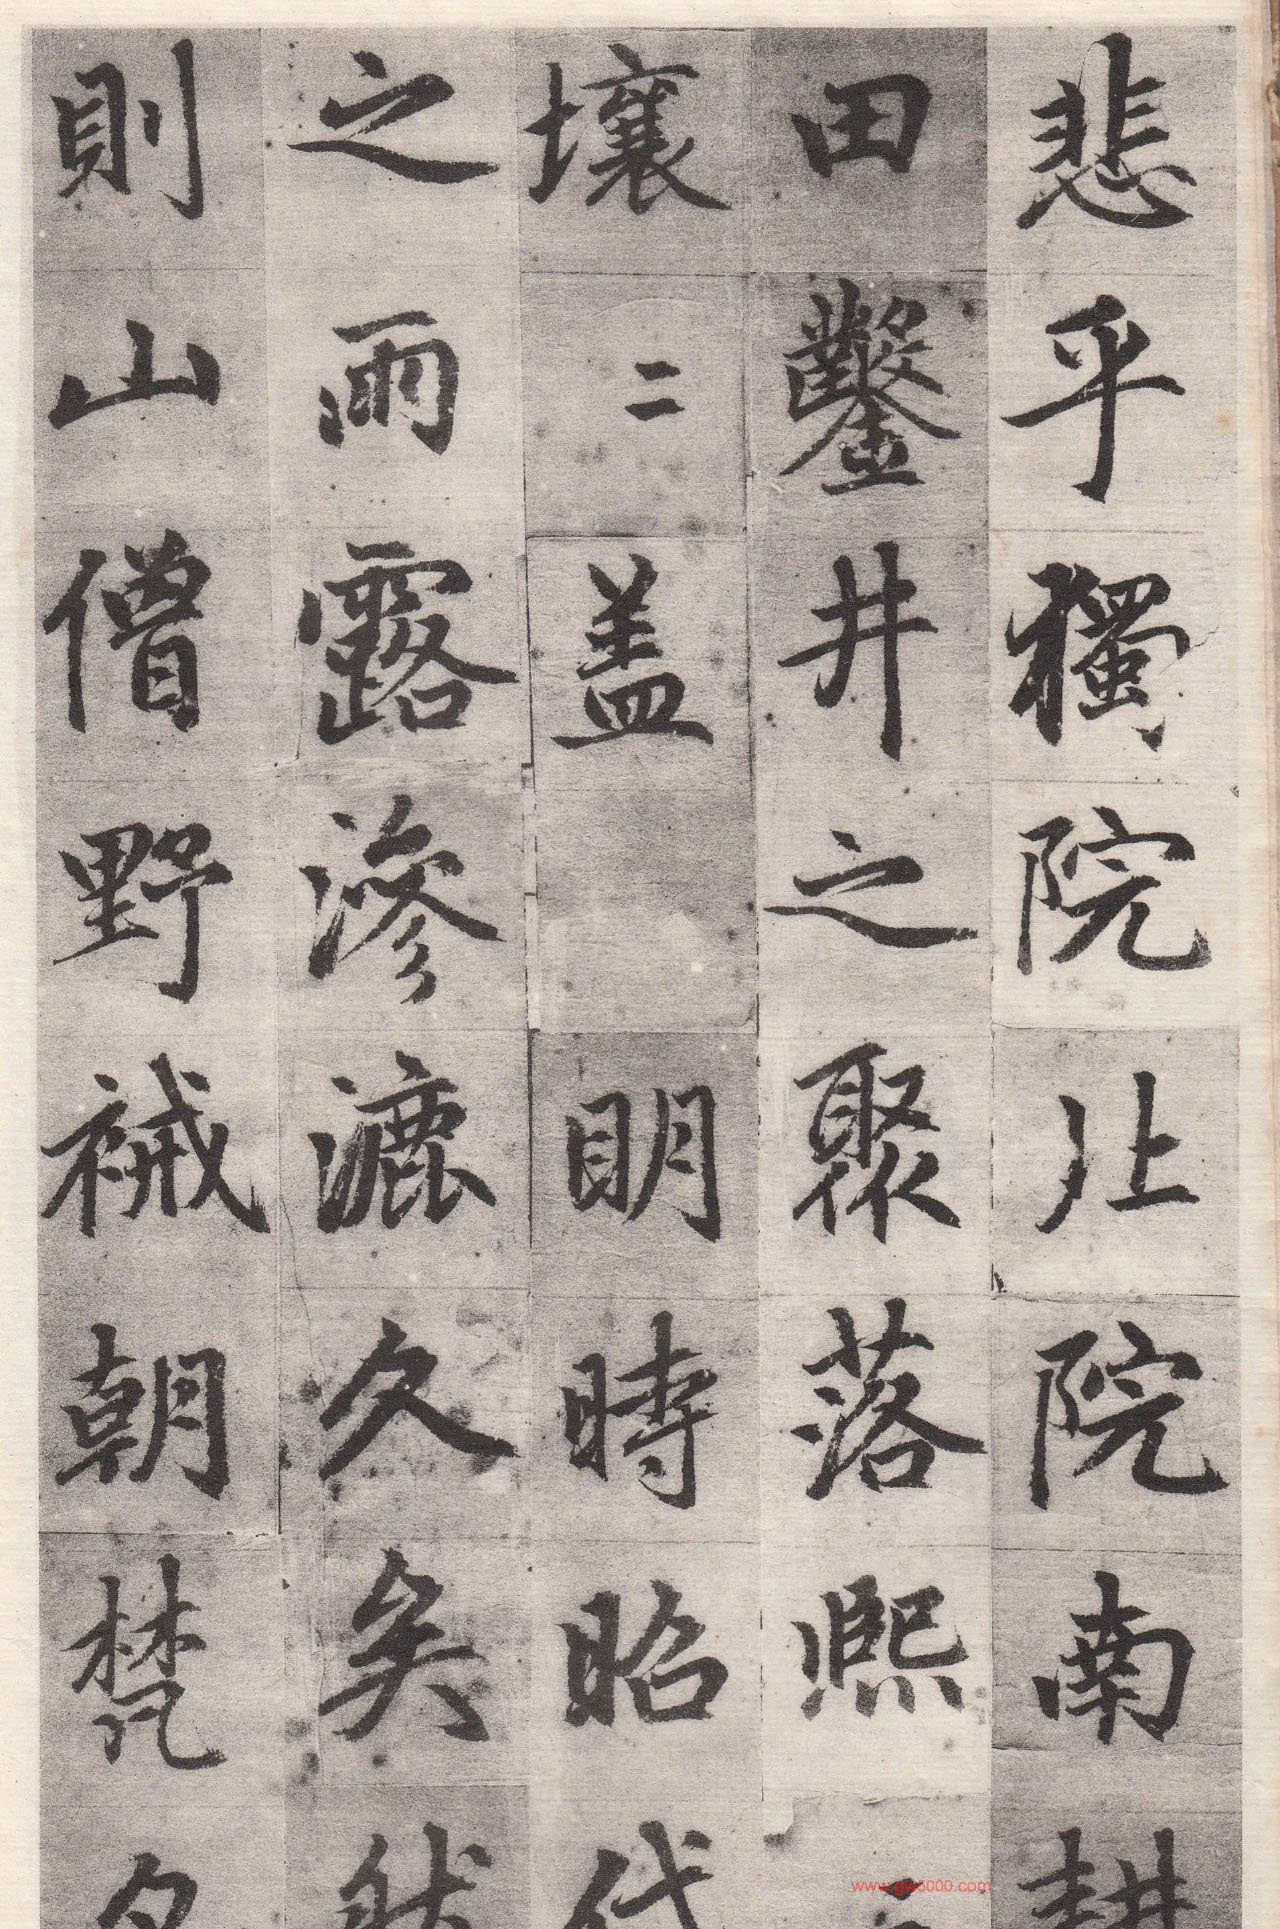 悲乎獨院北院南耕
田鑿井之聚落熙
壤二盖明時昭代
之雨露滲漉久矣然
則山僧野祴朝梵夕
www.gw5000.com